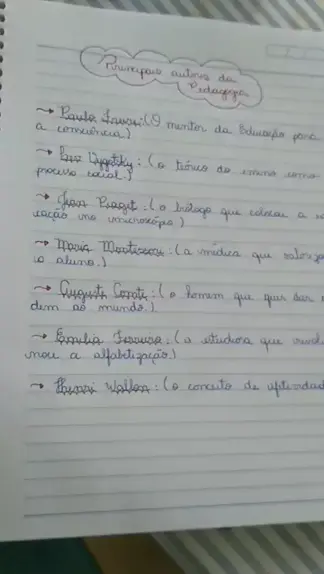 Principais autores da
Pedagogia
→ Paulo Freire: (O mentor da Educação para
a consciência)
→ Lev Vygotsky: (o teórico do ensino como
processo social)
→ Jean Piaget: (o biólogo que colocou a
cação no microscópio)
→ Maria Montessori: (a médica que valoriza
o aluno.)
→ Augusto Comte: (o homem que quis dar
dem ao mundo.)
→ Emília Ferreiro: (a estudiosa que
nou a alfabetização)
→ Henri Wallon: (o conceito de